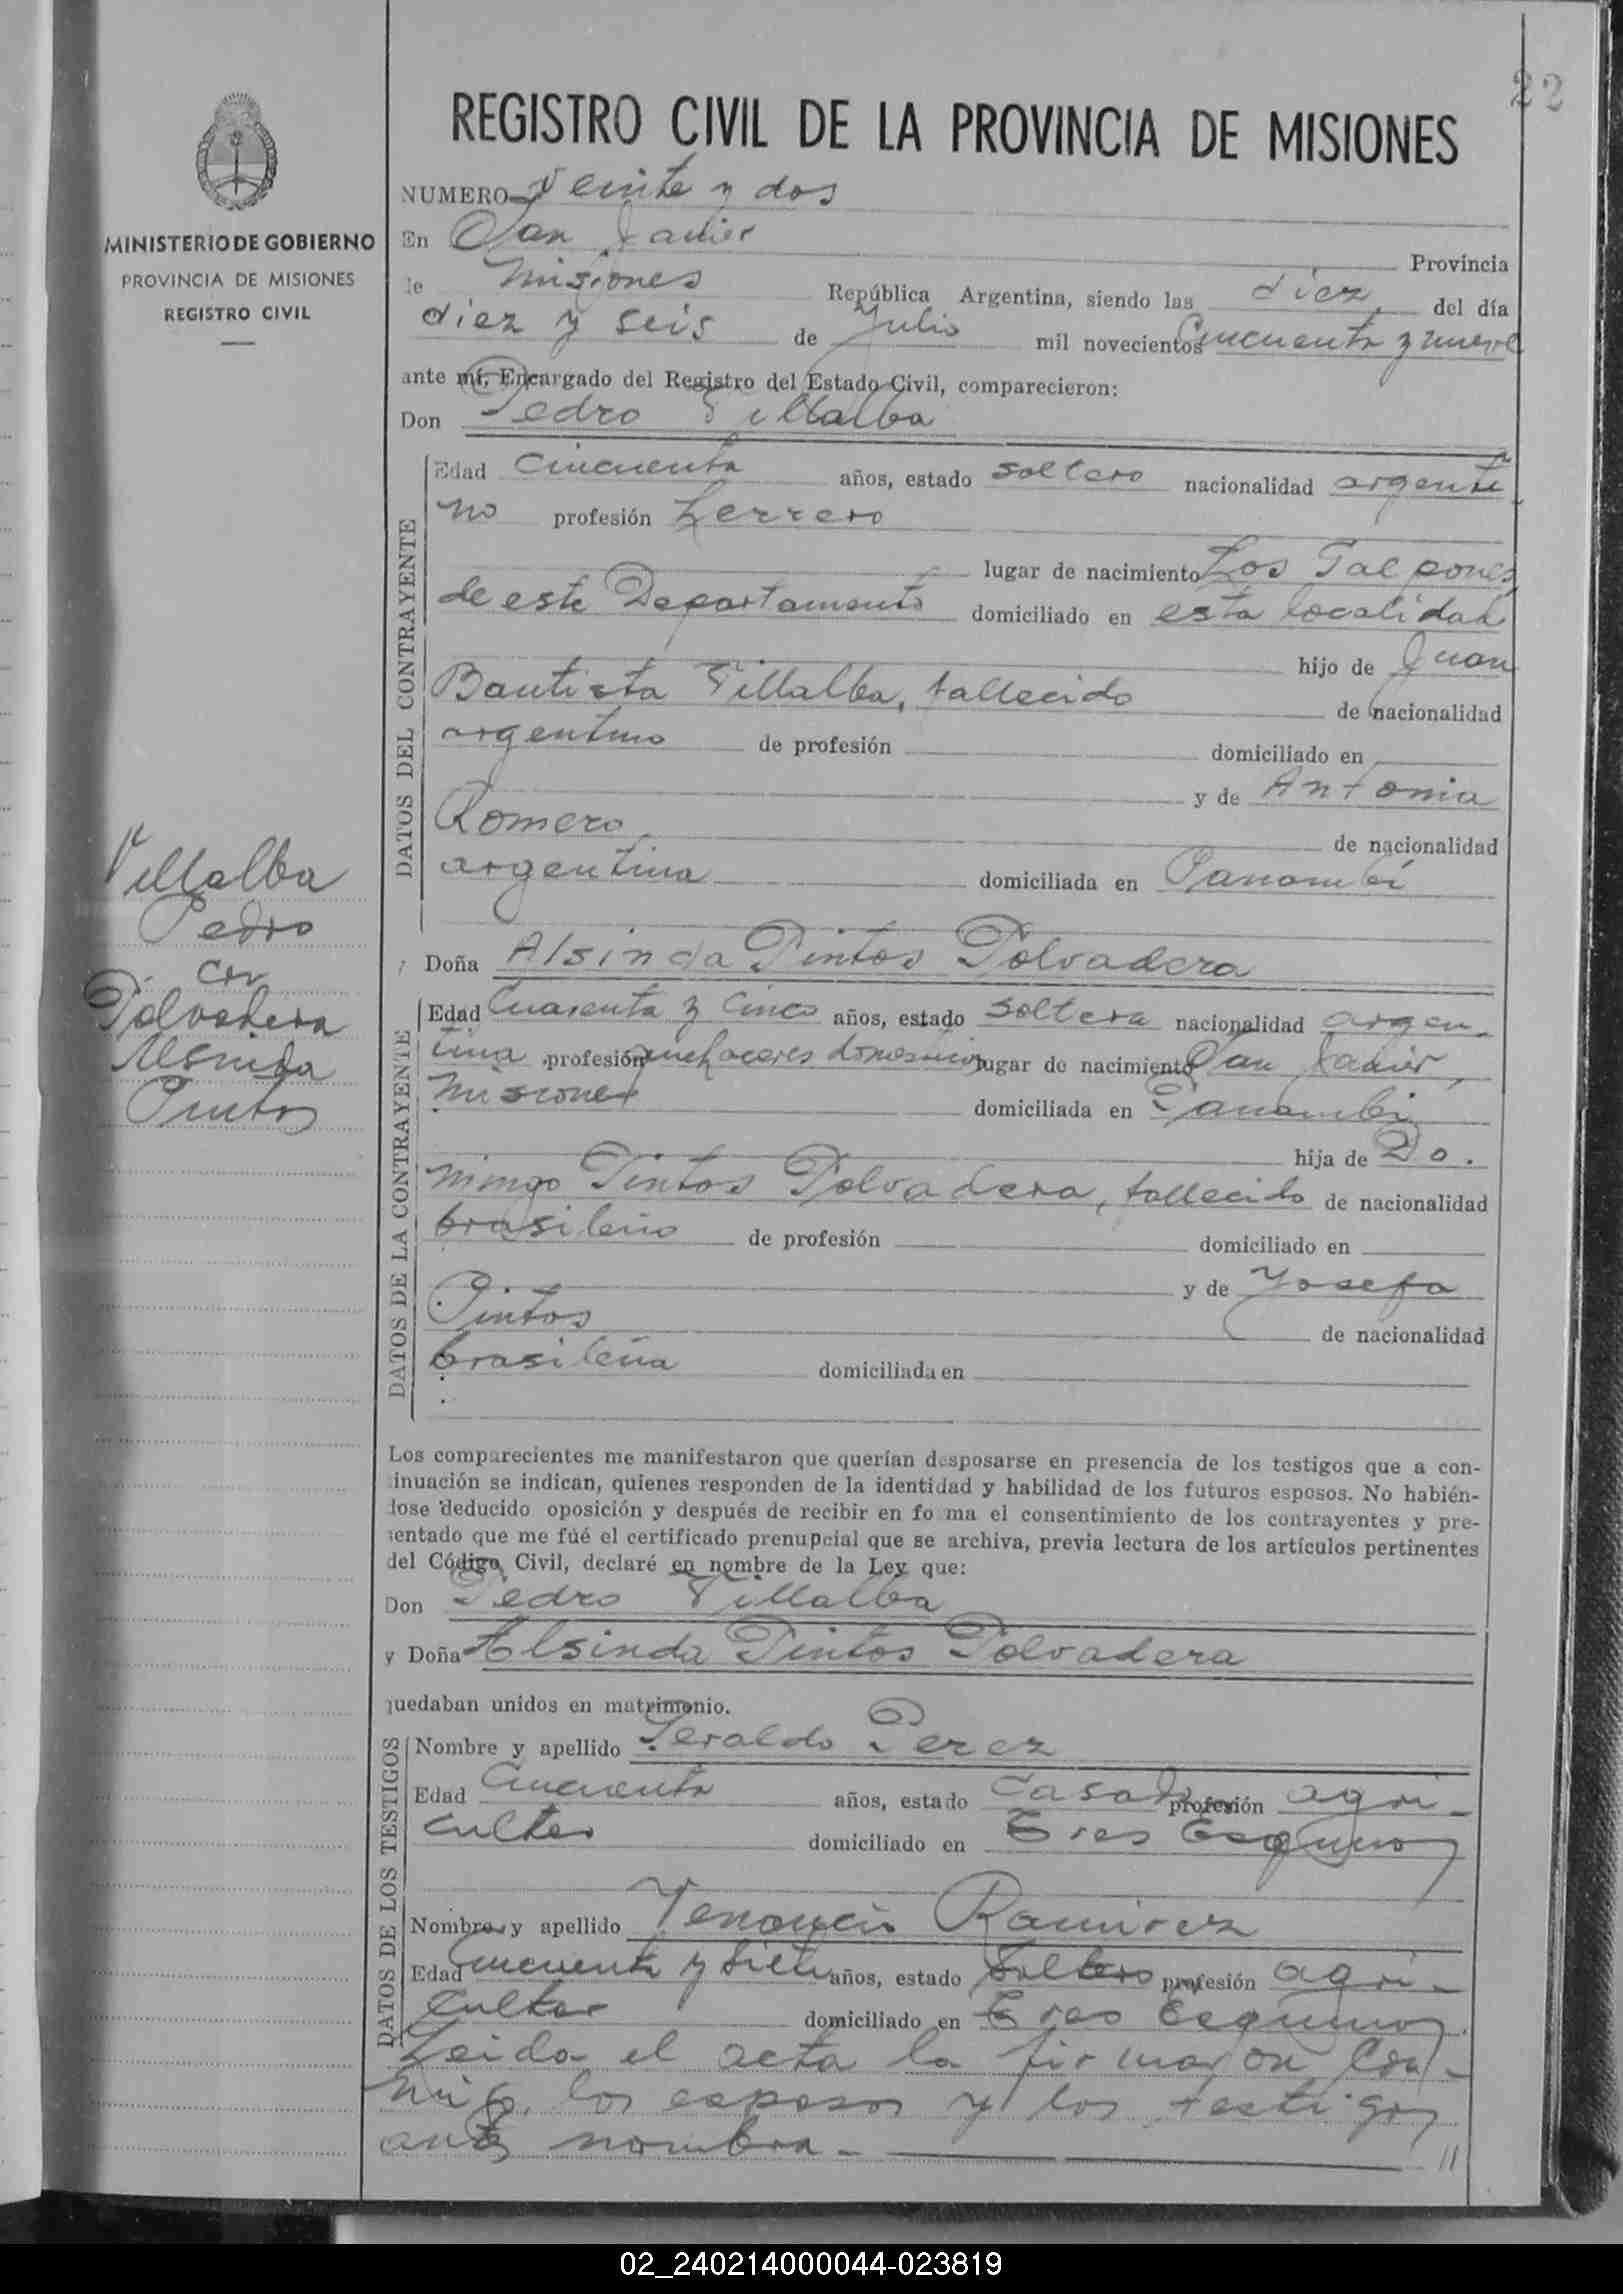 22
REGISTRO CIVIL DE LA PROVINCIA DE MISIONES
MINISTERIO DE GOBIERNO
PROVINCIA DE MISIONES
REGISTRO CIVIL
NUMERO Veinte y dos
En San Javier Provincia
de Misiones República Argentina, siendo las diez del día
diez y seis de Julio mil novecientos Cincuenta y nueve
ante mí, Encargado del Registro del Estado Civil, comparecieron:
Don Pedro Villalba
DATOS DEL CONTRAYENTE
Edad Cincuenta años, estado soltero nacionalidad argenti
no profesión herrero
lugar de nacimiento Los Galpones
de este Departamento domiciliado en esta localidad
hijo de Juan
Bautista Villalba, fallecido de nacionalidad
argentino de profesión domiciliado en
y de Antonia
Romero de nacionalidad
argentina domiciliada en Panambí
Villalba
Pedro
con
Polvadera
Alsinda
Pintos
Doña Alsinda Pintos Polvadera
DATOS DE LA CONTRAYENTE
Edad Cuarenta y Cinco años, estado Soltera nacionalidad argen-
tina profesión quehaceres domesticos lugar de nacimiento San Javier,
Misiones domiciliada en Panambí
hija de Do.
mingo Pintos Polvadera, fallecido de nacionalidad
brasileño de profesión domiciliado en
y de Josefa
Pintos de nacionalidad
brasileña domiciliada en
Los comparecientes me manifestaron que querían desposarse en presencia de los testigos que a con-
inuación se indican, quienes responden de la identidad y habilidad de los futuros esposos. No habién-
dose deducido oposición y después de recibir en fo ma el consentimiento de los contrayentes y pre-
sentado que me fué el certificado prenupcial que se archiva, previa lectura de los artículos pertinentes
del Código Civil, declaré en nombre de la Ley que:
Don Pedro Villalba
y Doña Alsinda Pintos Polvadera
quedaban unidos en matrimonio.
DATOS DE LOS TESTIGOS
Nombre y apellido Geraldo Perez
Edad Cincuenta años, estado Casado profesión agri-
cultor domiciliado en Tres Esquinas
Nombre y apellido Venancio Ramirez
Edad Cincuenta y siete años, estado Soltero profesión agri-
cultor domiciliado en Tres Esquinas
Leida el acta la firmaron con-
migo los esposos y los testigos
antes nombra- //
02_240214000044-023819